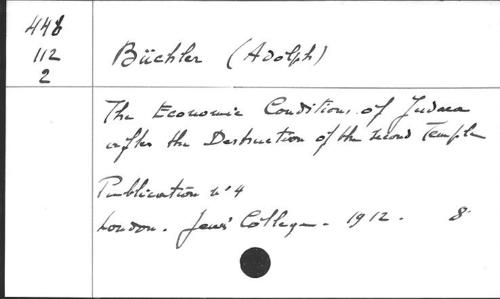 448
112
2
Büchler (Adolph)
The Economic Conditions of Judaea
after the Destruction of the second Temple
Publication n° 4
London. Jews' College. 1912. 8°